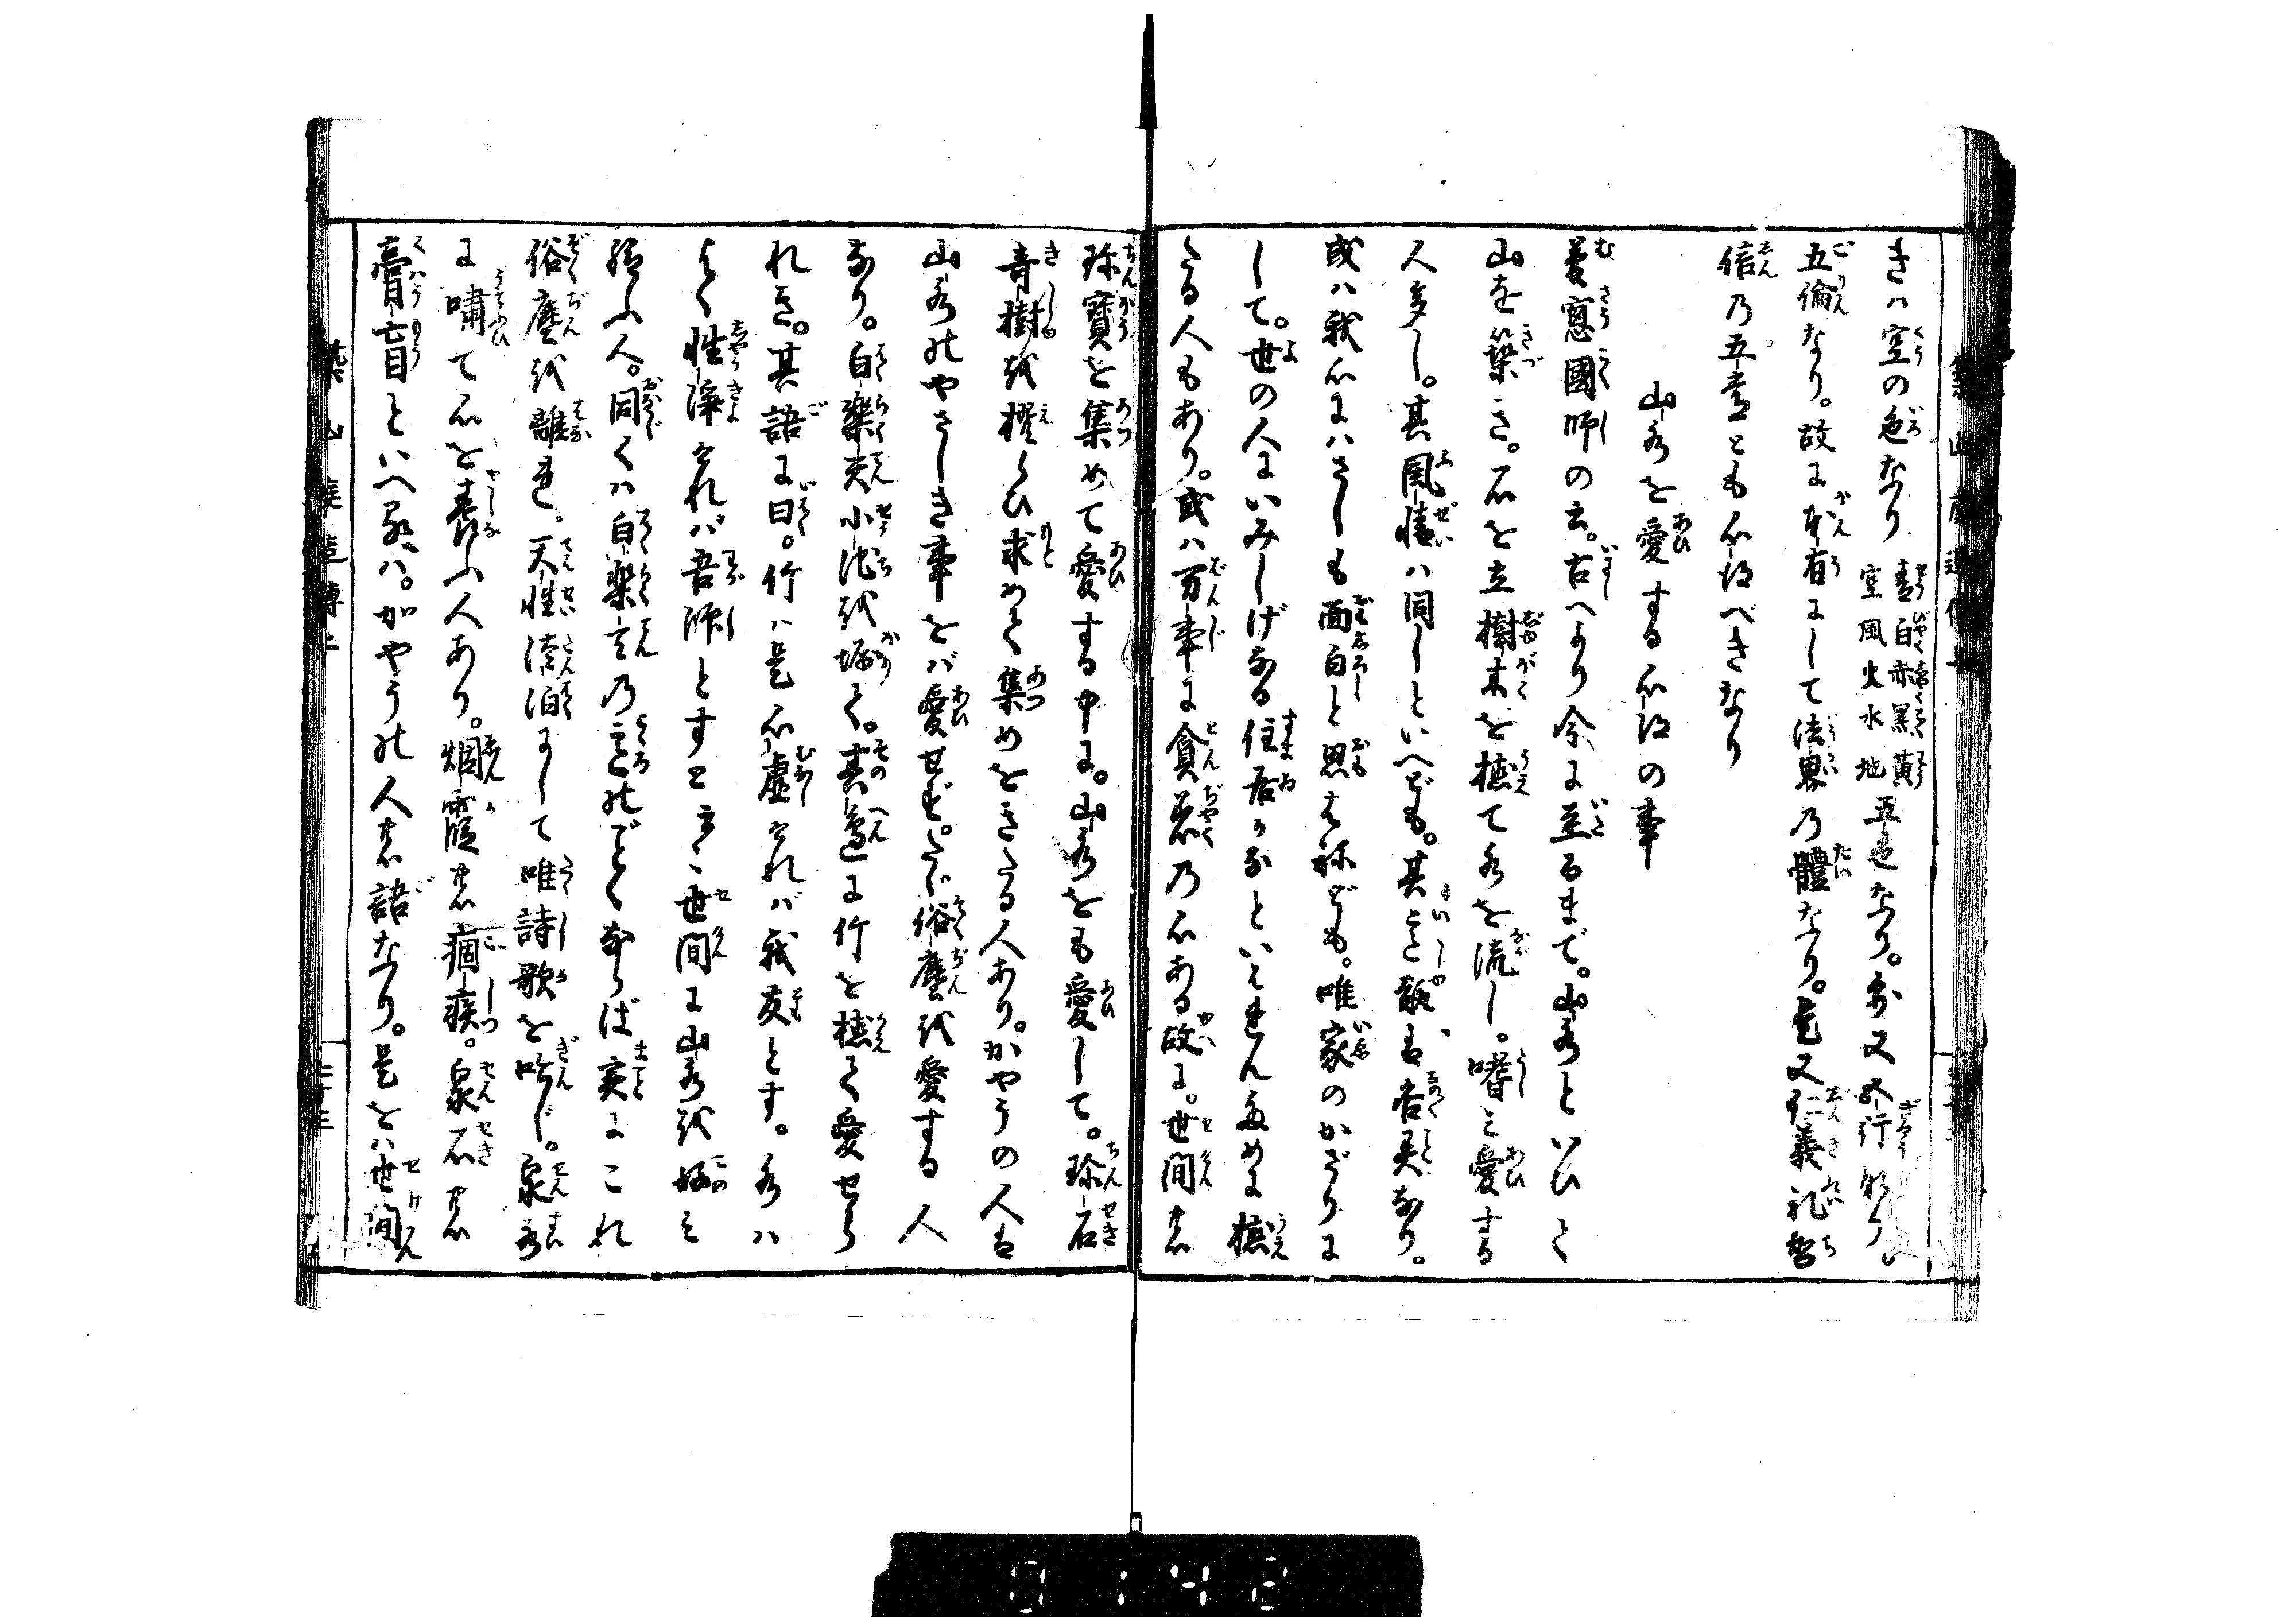 きハ空の色なり 青白赤黒黄
空風火水地 五色なり。
五倫なり。故に本有にして法界乃體なり。是又仁義礼智
信乃五真とも心得べきなり
山水を愛する心得の事
夢窓國師の云。古へより今に至るまで。山水といひて
山を築き。石を立樹木を植て水を流し。嗜ミ愛する
人多し。其風情ハ同しといへども。其意趣は各異なり。
或ハ我心にハさしも面白と思はねども。唯家のかざりに
して。世の人にいみしげなる住居かなといはれんために植
たる人もあり。或ハ万事に貪着乃心ある故に。世間の
珎寳を集めて愛する中に。山水をも愛して。珎石
奇樹を撰らひ求めて集めをきたる人あり。かやうの人は
山水のやさしき事をバ愛せず。たゞ俗塵を愛する人
なり。白樂天小池を堀て。其邊に竹を植て愛せら
れき。其語に曰。竹ハ是心虚ければ我友とす。水ハ
よく性浄ければ吾師とすと云云 世間に山水を好ミ
給ふ人。同くハ白樂天乃意のごとくならば実にこれ
俗塵を離れ。天性淡泊にして唯詩歌を吟じ。泉水
に嘯て心を養ふ人あり。烟霞の痼疾。泉石の
膏肓といへるハ。かやうの人の語なり。是をハ世間
築山庭造傳上